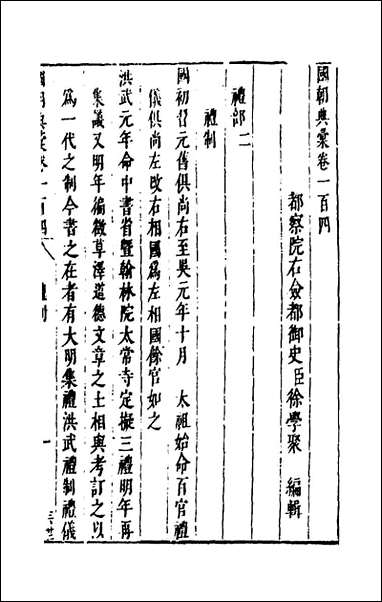 國朝典彙卷一百四
都察院右僉都御史臣徐學聚 編輯
禮部二
禮制
國初仍元舊俱尚右至吳元年十月 太祖始命百官禮
儀俱尚左改右相國為左相國餘官如之
洪武元年命中書省暨翰林院太常寺定擬三禮明年再
集議又明年徧徵草澤道德文章之士相與考訂之以
為一代之制今書之存者有大明集禮洪武禮制禮儀
國朝典彙卷一百四 禮制 一